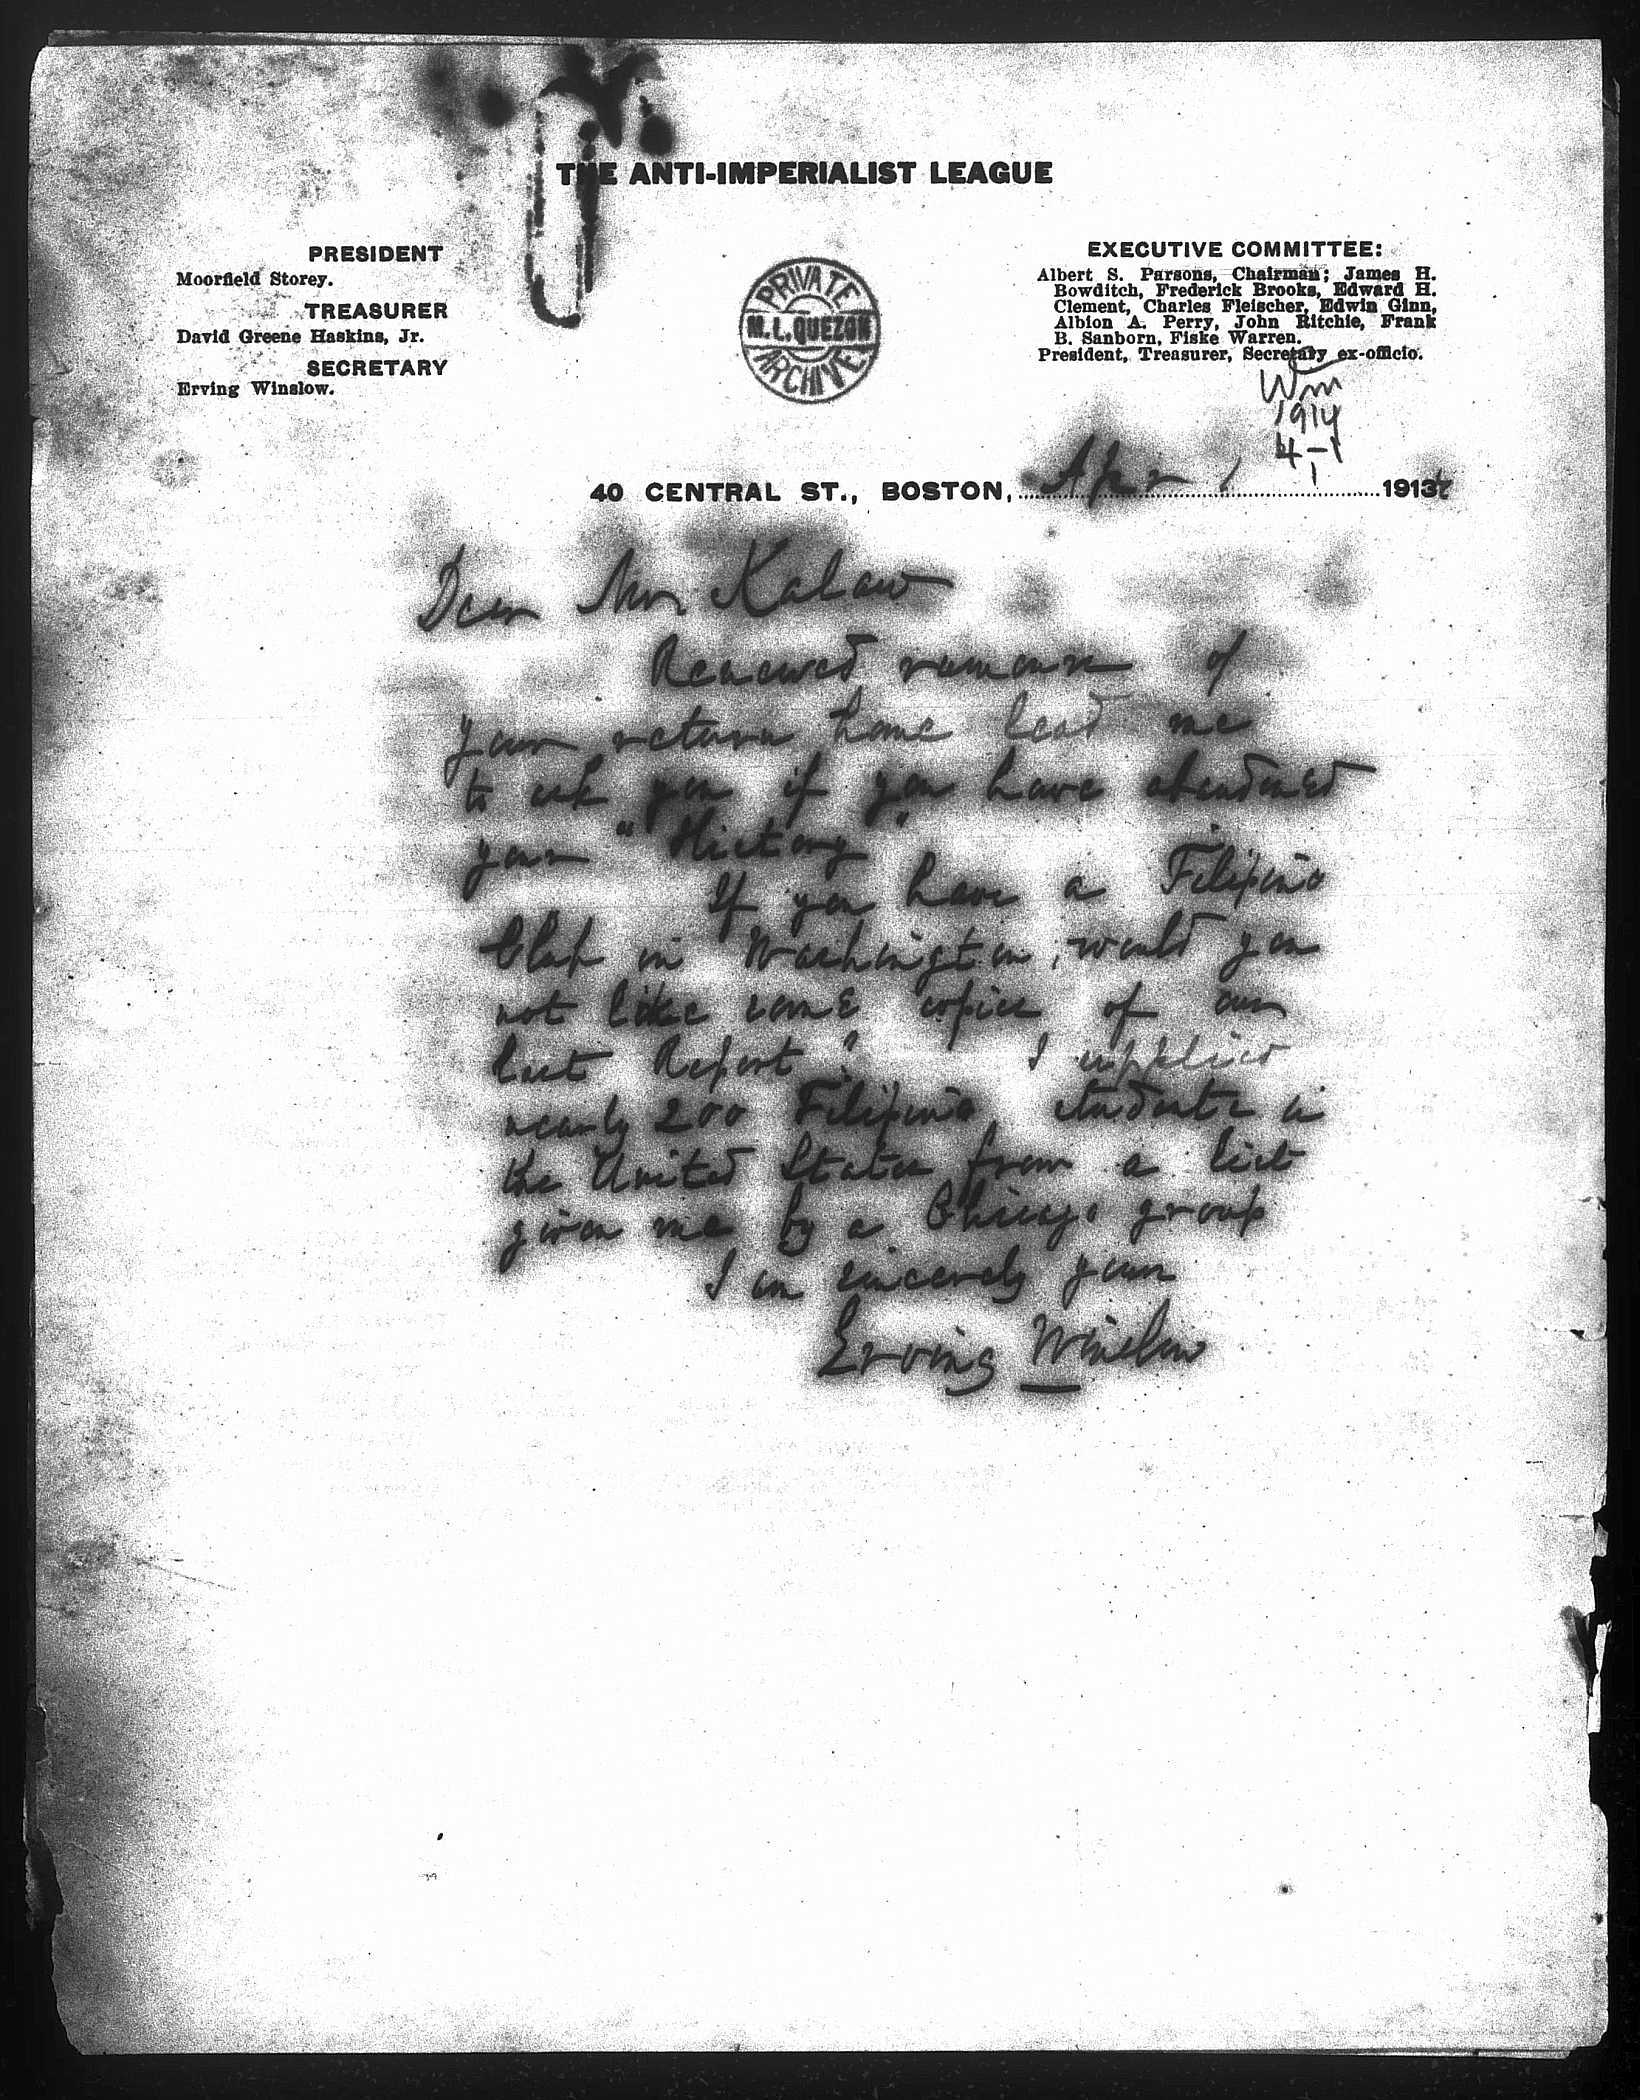 THE ANTI-IMPERIALIST LEAGUE
PRESIDENT
Moorfield Storey.
TREASURER
David Greene Haskins, Jr.
SECRETARY
Erving Winslow.
PRIVATE
M. L. QUEZON
ARCHIVE
EXECUTIVE COMMITTEE:
Albert S. Parsons, Chairman; James H.
Bowditch, Frederick Brooks, Edward H.
Clement, Charles Fleischer, Edwin Ginn,
Albion A. Perry, John Ritchie, Frank
B. Sanborn, Fiske Warren.
President, Treasurer, Secretary ex-officio.
1914
4-1
40 CENTRAL ST., BOSTON, Apr 1 1913
Dear Mr Kalaw
Renewed rumours of
your return home lead me
to ask you if you have abandoned
your "History"
If you have a Filipino
Club in Washington, would you
not like some copies of our
last Report? I supplied
nearly 200 Filipino students in
the United States from a list
given me by a Chicago group
I am sincerely yours
Erving Winslow